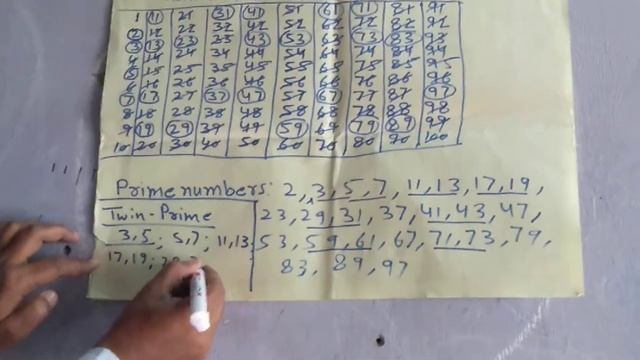 1 11 21 31 41 51 61 71 81 91
2 12 22 32 42 52 62 72 82 92
3 13 23 33 43 53 63 73 83 93
4 14 24 34 44 54 64 74 84 94
5 15 25 35 45 55 65 75 85 95
6 16 26 36 46 56 66 76 86 96
7 17 27 37 47 57 67 77 87 97
8 18 28 38 48 58 68 78 88 98
9 19 29 39 49 59 69 79 89 99
10 20 30 40 50 60 70 80 90 100
Prime numbers: 2, 3, 5, 7, 11, 13, 17, 19,
23, 29, 31, 37, 41, 43, 47,
53, 59, 61, 67, 71, 73, 79,
83, 89, 97
Twin-Prime
3,5; 5,7; 11,13;
17,19;